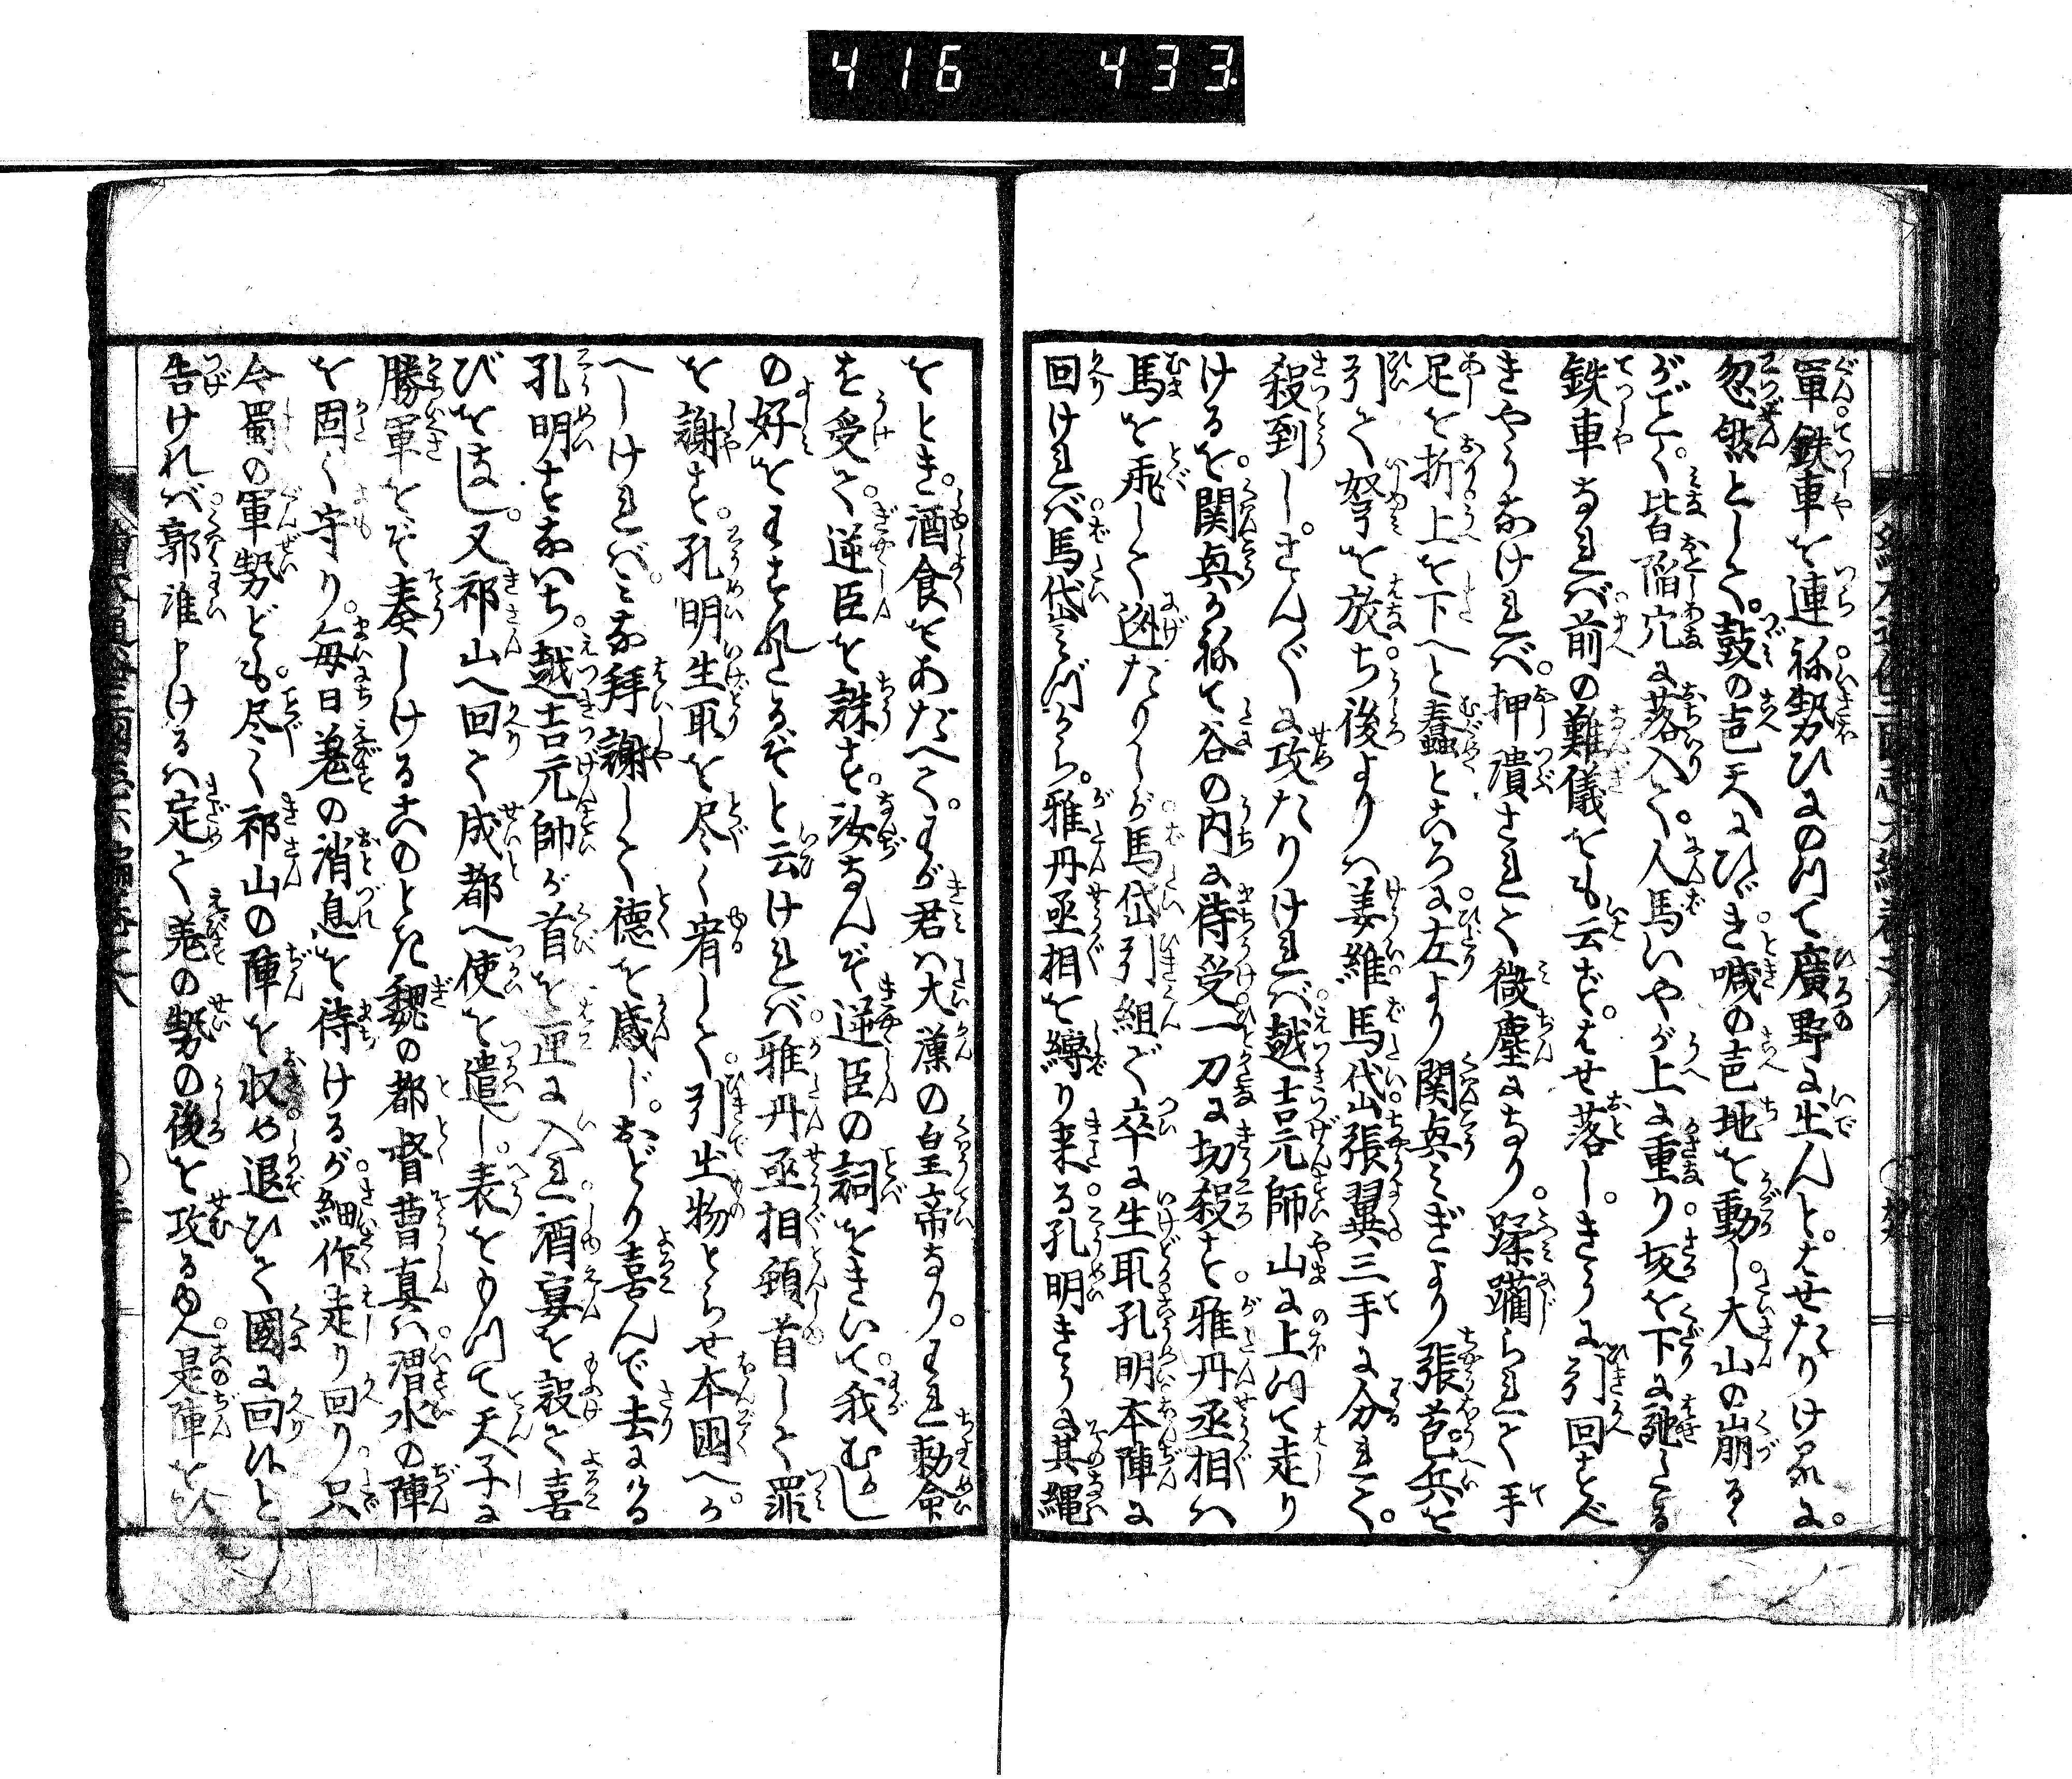 416 433
軍鉄車を連ね勢ひにのつて廣野に出んとはせたりけるに
忽然として鼓の声天にひゞき喊の声地を動し大山の崩るゝ
がごとく皆陥穴に落入て人馬いやが上に重り坂を下に馳たる
鉄車なれば前の難儀をも云ずはせ落しきうに引回すべ
きやうなければ押潰されて微塵になり蹂躙られて手
足を折上を下へと蠢ところに左より関興みぎより張苞兵を
引て弩を放ち後よりハ姜維馬岱張翼三手に分れて
殺到しさん〴〵に攻たりければ越吉元師山に上つて走り
けるを関興かねて谷の内に待受一刀に切殺す雅丹丞相ハ
馬を飛して逃たりしが馬岱引組で卒に生取孔明本陣に
回ければ馬岱みづから雅丹丞相を縛り来る孔明きうに其縄
をとき酒食をあたへてわが君ハ大漢の皇帝なりわれ勅命
を受て逆臣を誅す汝なんぞ逆臣の詞をきいて我むかし
の好をわすれたるぞと云ければ雅丹丞相頓首して罪
を謝す孔明生取を尽く宥して引出物とらせ本国へか
へしければみな拝謝して徳を感じおどり喜んで去にける
孔明すなはち越吉元帥が首を匣に入れ酒宴を設て喜
びをなし又祁山へ回て成都へ使を遣し表をもつて天子に
勝軍をぞ奏しける此のとき魏の都督曹真ハ渭水の陣
を固く守り毎日羗の消息を待けるが細作走り回り只
今蜀の軍勢ども尽く祁山の陣を収め退ひて國に回ルと
告ければ郭淮申けるハ定て羗の勢の後を攻るゆへ是陣を